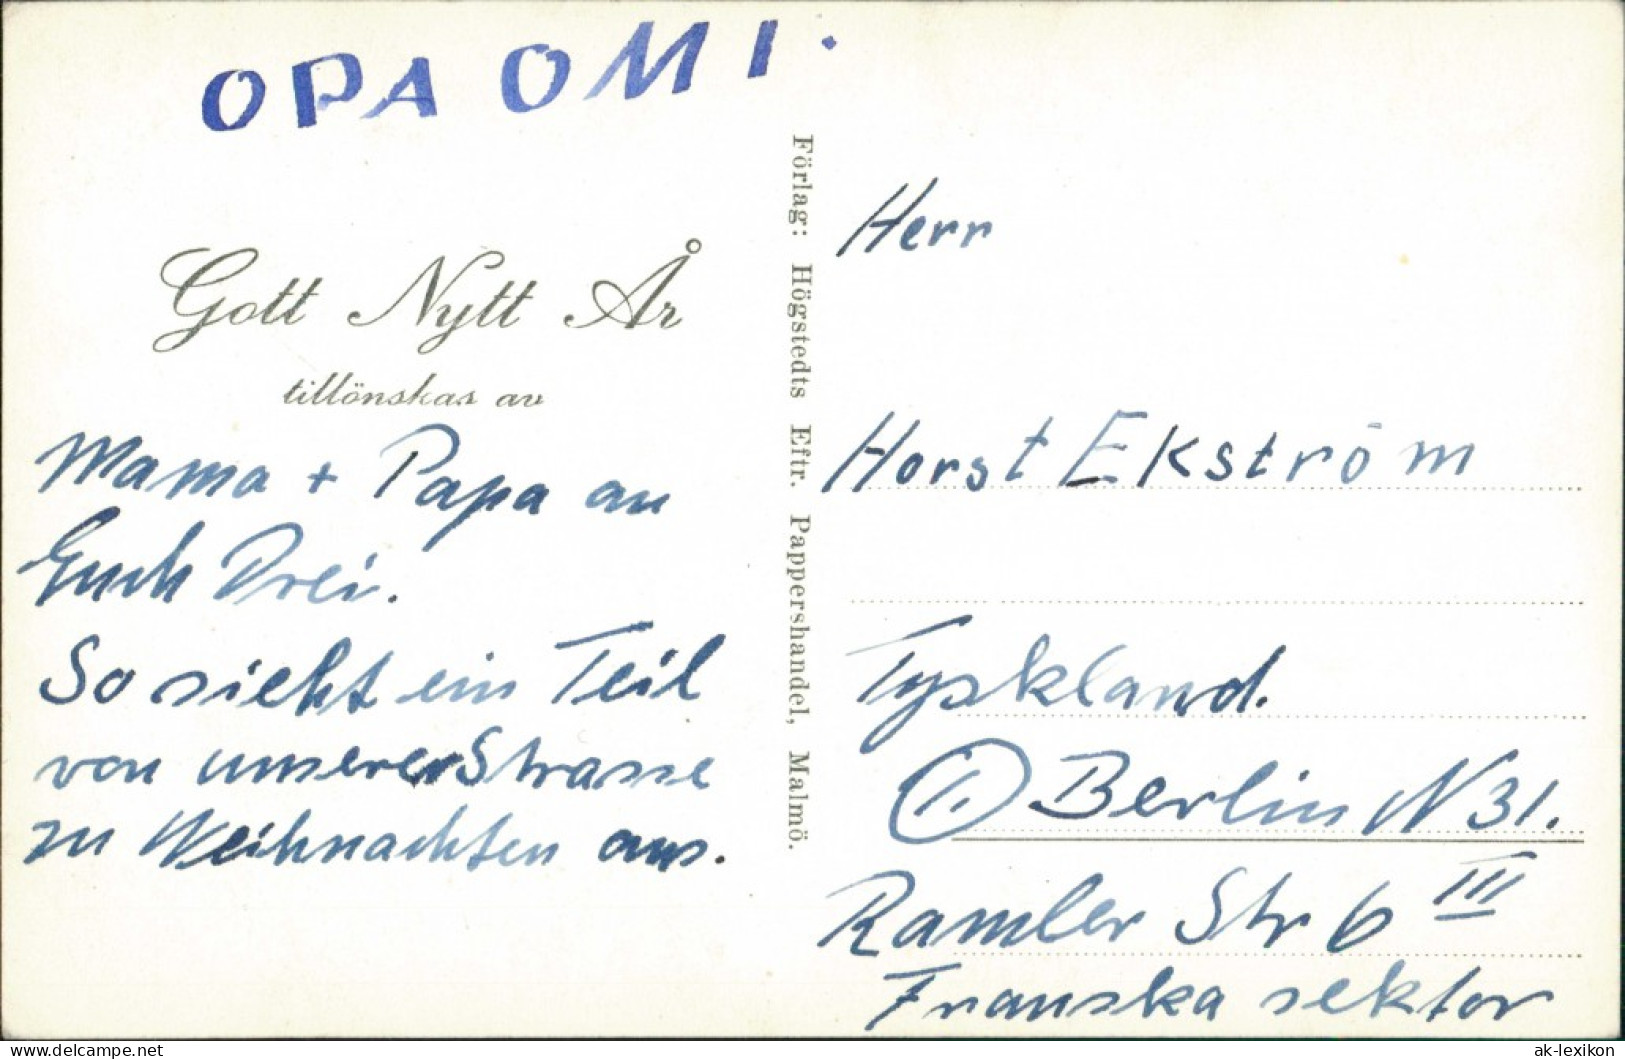 OPA OMI.
Gott Nytt År
tillönskas av
Mama + Papa an
Euch Drei.
So sieht ein Teil
von unserer Strasse
zu Weihnachten aus.
Förlag: Högstedts Eftr. Pappershandel, Malmö.
Herr
Horst Ekström
Tyskland.
① Berlin N 31.
Ramler Str 6 III
Franska sektor
www.ak-ansichtskarten.de
ak-lexikon